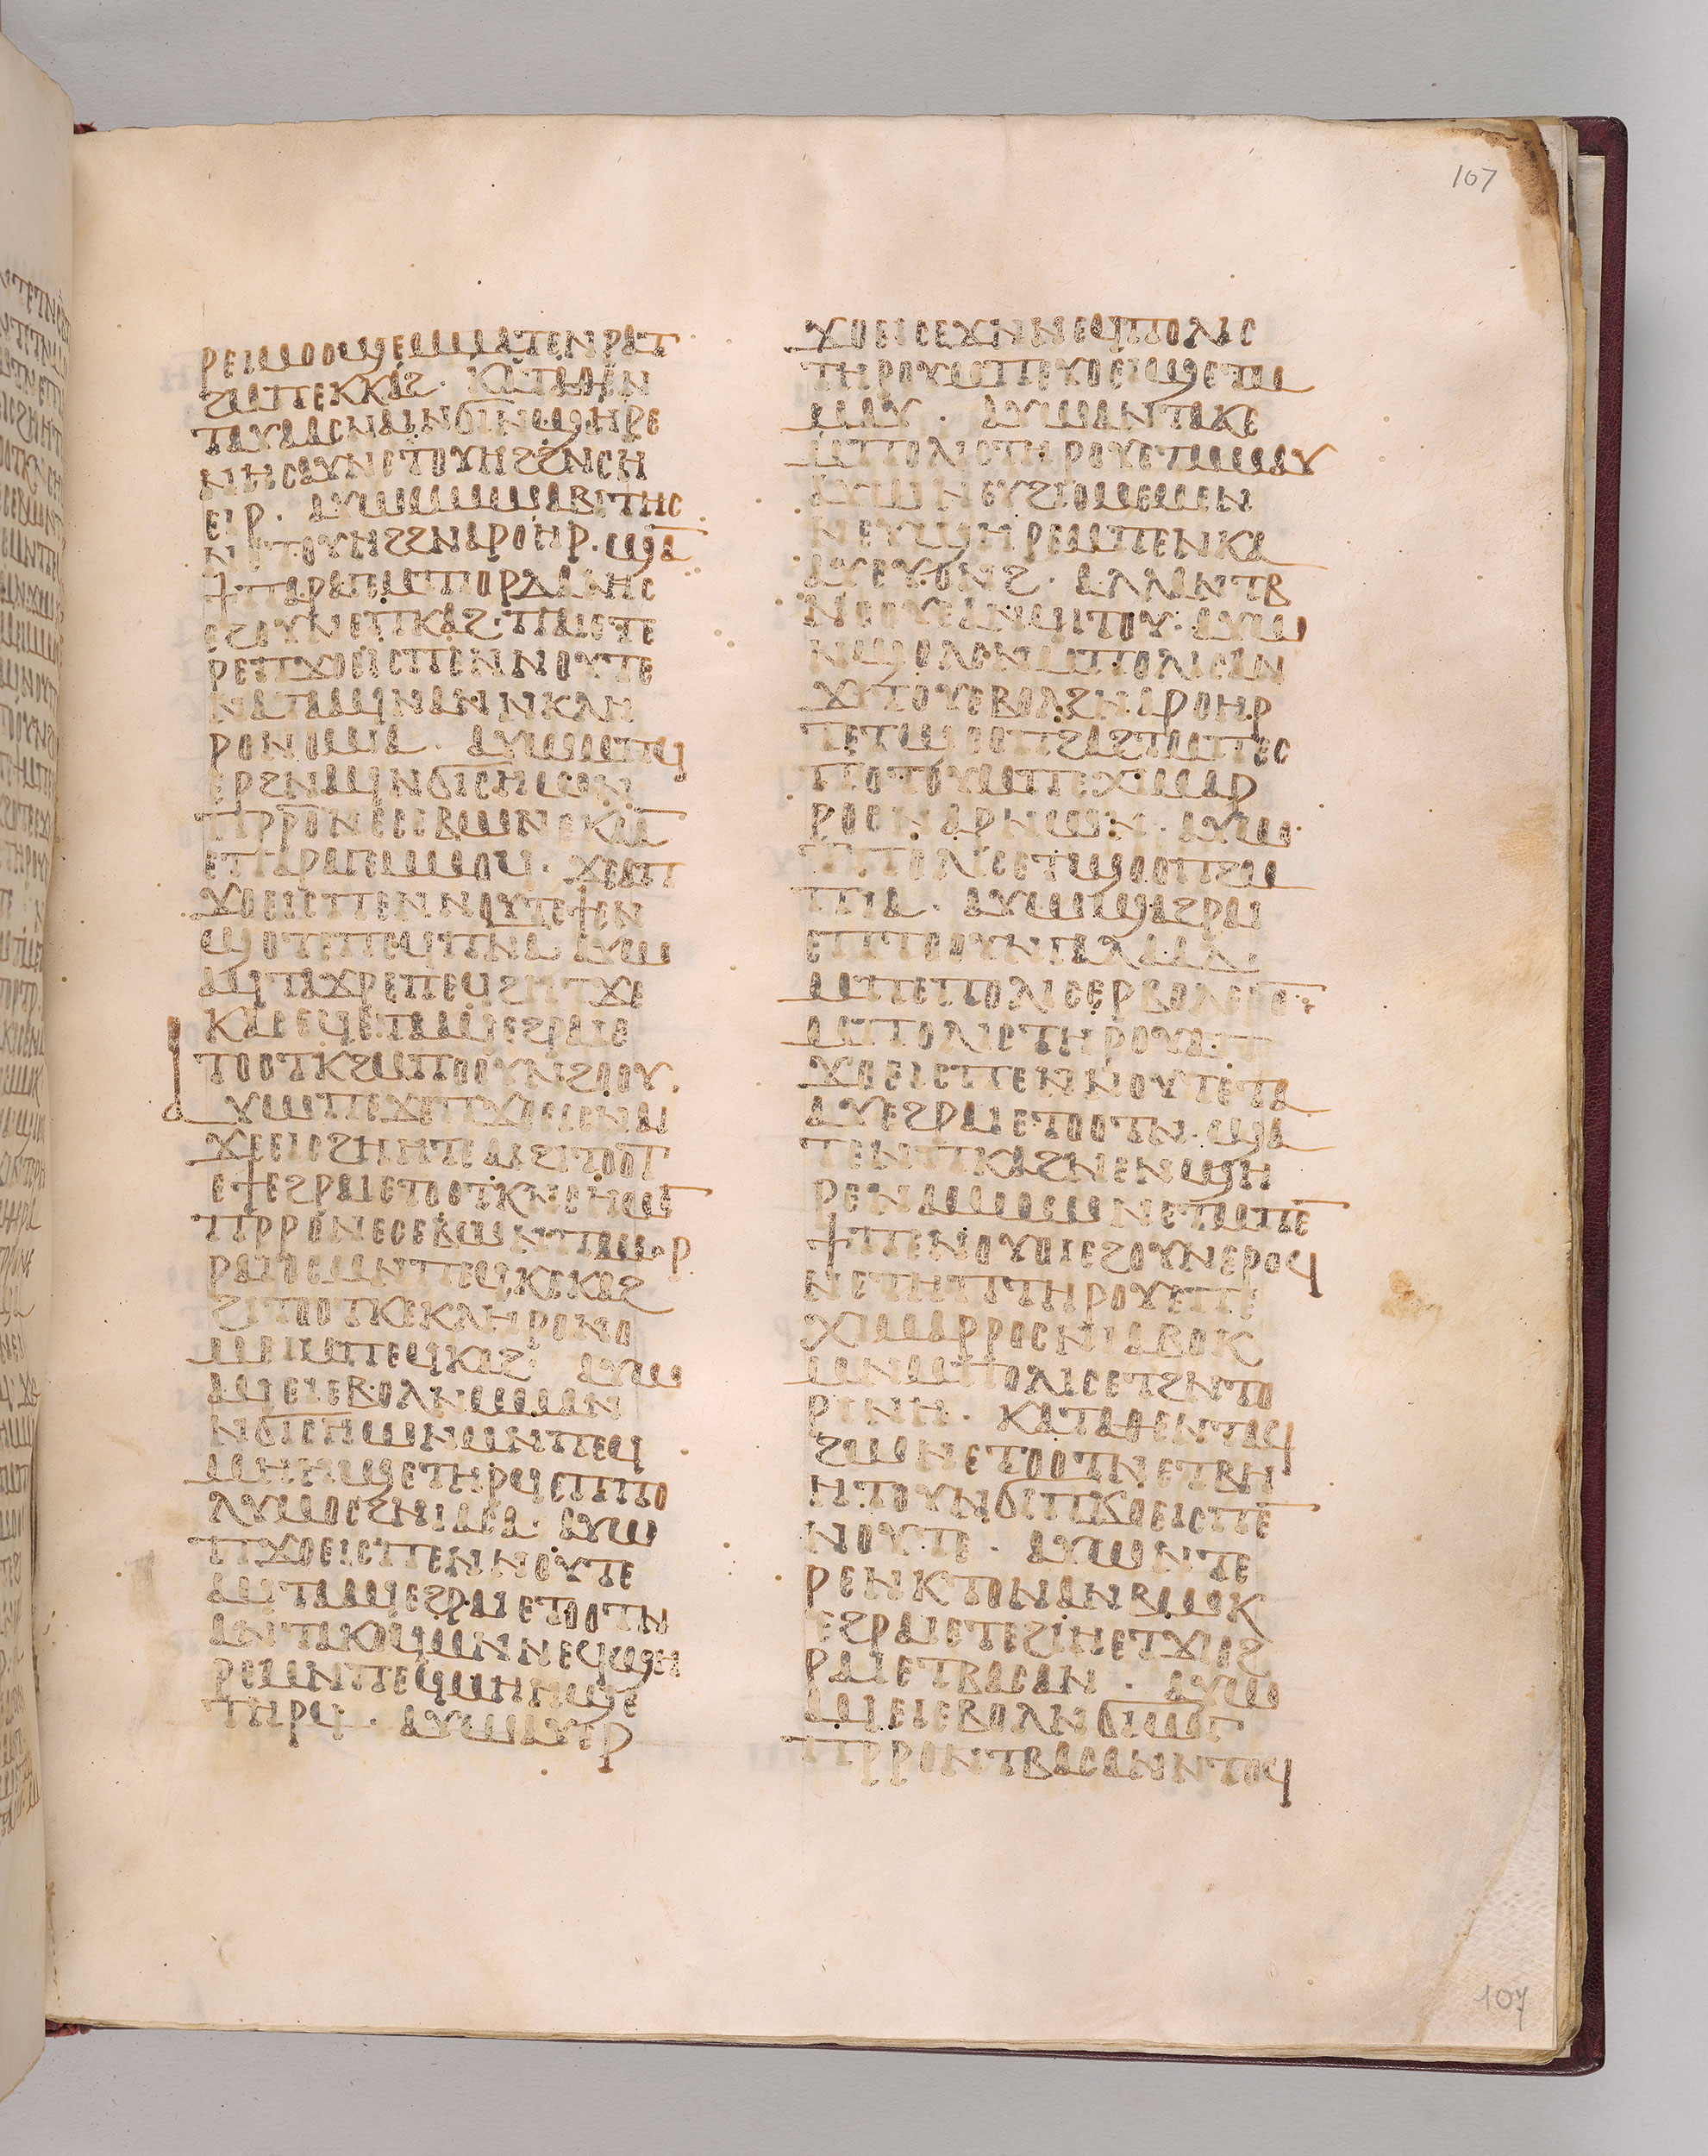 ⲣⲉⲙⲟⲟϣⲉⲙⲙⲁⲧⲉⲛⲣⲁⲧ
ϩⲙⲡⲉⲕⲕⲁϩ· ⲕⲁⲧⲁⲑⲉⲛ
ⲧⲁⲩⲁⲁⲥⲛⲁⲓⲛϭⲓⲛϣⲏⲣⲉ
ⲛⲏⲥⲁⲩⲛⲉⲧⲟⲩⲏϩϩⲛⲥⲏ
ⲉⲓⲣ· ⲁⲩⲱⲙⲙⲱⲁⲃⲓⲧⲏⲥ
ⲛⲉⲧⲟⲩⲏϩϩⲛⲁⲣⲟⲏⲣ·ϣⲁ
ϯⲡⲁⲣⲁⲅⲉⲙⲡⲓⲟⲣⲇⲁⲛⲏⲥ
ⲉϩⲟⲩⲛⲉⲡⲕⲁϩ·ⲡⲁⲓⲉⲧⲉ
ⲣⲉⲡϫⲟⲉⲓⲥⲡⲉⲛⲛⲟⲩⲧⲉ
ⲛⲁⲧⲁⲁϥⲛⲁⲛⲛⲕⲗⲏ
ⲣⲟⲛⲟⲙⲓⲁ· ⲁⲩⲱⲙⲡϥ
ⲉⲣϩⲛⲁϥⲛϭⲓⲥⲏⲱⲛ
ⲡⲣⲣⲟⲛⲉⲥⲉⲃⲱⲛⲉⲕⲁⲁ
ⲉⲡⲁⲣⲁⲅⲉⲙⲙⲟϥ· ϫⲉⲁⲡ
ϫⲟⲉⲓⲥⲡⲉⲛⲛⲟⲩⲧⲉϯⲉⲛ
ϣⲟⲧⲉⲡⲉϥⲡⲛⲁ ⲁⲩⲱ
ⲁϥⲧⲁϫⲣⲉⲡⲉϥϩⲏⲧϫⲉ
ⲕⲁⲥⲉϥⲉⲧⲁⲁϥⲉϩⲣⲁⲓⲉ
ⲧⲟⲟⲧⲕϩⲙⲡⲟⲟⲩⲛϩⲟⲟⲩ·
ⲁⲩⲱⲡⲉϫⲉⲡϫⲟⲉⲓⲥⲛⲁⲓ
ϫⲉⲉⲓⲥϩⲏⲏⲧⲉⲁⲓϩⲓⲧⲟⲟⲧ
ⲉϯⲉϩⲣⲁⲓⲉⲧⲟⲟⲧⲕⲛⲥⲏⲱⲛ
ⲡⲣⲣⲟⲛⲉⲥⲉⲃⲱⲛⲡⲁⲙⲟⲣ
ⲣⲁⲓⲟⲥⲙⲛⲡⲉϥⲕⲉⲕⲁϩ
ϩⲓⲧⲟⲟⲧⲕⲉⲕⲗⲏⲣⲟⲛⲟ
ⲙⲉⲓⲙⲡⲉϥⲕⲁϩ· ⲁⲩⲱ
ⲁϥⲉⲓⲉⲃⲟⲗⲛⲙⲙⲁⲛ
ⲛϭⲓⲥⲏⲱⲛⲙⲛⲡⲉϥ
ⲙⲏⲏϣⲉⲧⲏⲣϥⲉⲡⲡⲟ
ⲗⲩⲙⲟⲥϩⲛⲓⲁⲥⲁ· ⲁⲩⲱ
ⲡϫⲟⲉⲓⲥⲡⲉⲛⲛⲟⲩⲧⲉ
ⲁϥⲧⲁⲁϥⲉϩⲣⲁⲓⲉⲧⲟⲟⲧⲛ
ⲁⲛⲧⲁⲕⲟϥⲙⲛⲛⲉϥϣⲏ
ⲣⲉⲙⲛⲡⲉϥⲙⲏⲏϣⲉ
ⲧⲏⲣϥ· ⲁⲩⲱⲁⲩⲉⲣ
ϫⲟⲉⲓⲥⲉϫⲛⲛⲉϥⲡⲟⲗⲓⲥ
ⲧⲏⲣⲟⲩⲙⲡⲉⲩⲟⲉⲓϣⲉⲧⲙ
ⲙⲁⲩ· ⲁⲩⲱⲁⲛⲧⲁⲕⲉ
ⲙⲡⲟⲗⲓⲥⲧⲏⲣⲟⲩⲉⲧⲙⲙⲁⲩ
ⲁⲩⲱⲛⲉⲩϩⲓⲟⲙⲉⲙⲛ
ⲛⲉⲩϣⲏⲣⲉⲙⲡⲉⲛⲕⲁ
ⲁⲩⲉⲩⲟⲛϩ· ⲁⲗⲗⲁⲛⲧⲃ
ⲛⲟⲟⲩⲉⲁⲛϥⲓⲧⲟⲩ· ⲁⲩⲱ
ⲛϣⲟⲗⲟⲛⲙⲡⲟⲗⲓⲥⲁⲛ
ϫⲓⲧⲟⲩⲉⲃⲟⲗϩⲛⲁⲣⲟⲏⲣ
ⲧⲉⲧϣⲟⲟⲡϩⲁϩⲧⲙⲡⲉⲥ
ⲡⲟⲧⲟⲩⲙⲡⲉⲭⲓⲙⲁⲣ
ⲣⲟⲥⲛⲁⲣⲛⲱⲛ· ⲁⲩⲱ
ⲧⲡⲟⲗⲓⲥⲉⲧϣⲟⲟⲡϩⲙ
ⲡⲓⲁ· ⲁⲩⲱϣⲁϩⲣⲁⲓ
ⲉⲡⲧⲟⲟⲩⲛⲅⲁⲗⲁⲁⲇ·
ⲙⲡⲉⲡⲟⲗⲓⲥⲉⲣⲃⲟⲗⲉⲣⲟⲛ
ⲙⲡⲟⲗⲓⲥⲧⲏⲣⲟⲩⲁⲡ
ϫⲟⲉⲓⲥⲡⲉⲛⲛⲟⲩⲧⲉⲧⲁ
ⲁⲩⲉϩⲣⲁⲓⲉⲧⲟⲟⲧⲛ· ϣⲁ
ⲧⲉⲛⲡⲕⲁϩⲛⲉⲛϣⲏ
ⲣⲉⲛⲁⲙⲙⲱⲛⲉⲧⲙⲡⲉ
ϯⲡⲉⲛⲟⲩⲟⲓⲉϩⲟⲩⲛⲉⲣⲟϥ
ⲛⲉⲧⲏⲡⲧⲏⲣⲟⲩⲉⲡⲉ
ⲭⲓⲙⲁⲣⲣⲟⲥⲛⲓⲁⲃⲟⲕ
ⲙⲛⲙⲡⲟⲗⲓⲥⲉⲧϩⲛⲧⲟ
ⲣⲓⲛⲏ· ⲕⲁⲧⲁⲑⲉⲛⲧⲁϥ
ϩⲱⲛⲉⲧⲟⲟⲧⲛⲉⲧⲃⲏ
ⲏⲧⲟⲩⲛϭⲓⲡϫⲟⲉⲓⲥⲡⲉ
ⲛⲟⲩⲧⲉ· ⲁⲩⲱⲛⲧⲉ
ⲣⲉⲛⲕⲧⲟⲛⲁⲛⲃⲱⲕ
ⲉϩⲣⲁⲓⲉⲧⲉϩⲓⲏⲉⲧϫⲓⲉϩ
ⲣⲁⲓⲉⲧⲃⲁⲥⲁⲛ· ⲁⲩⲱ
ⲁϥⲉⲓⲉⲃⲟⲗⲛϭⲓⲱⲅ
ⲡⲣⲣⲟⲛⲧⲃⲁⲥⲁⲛⲛⲧⲟϥ
107
107